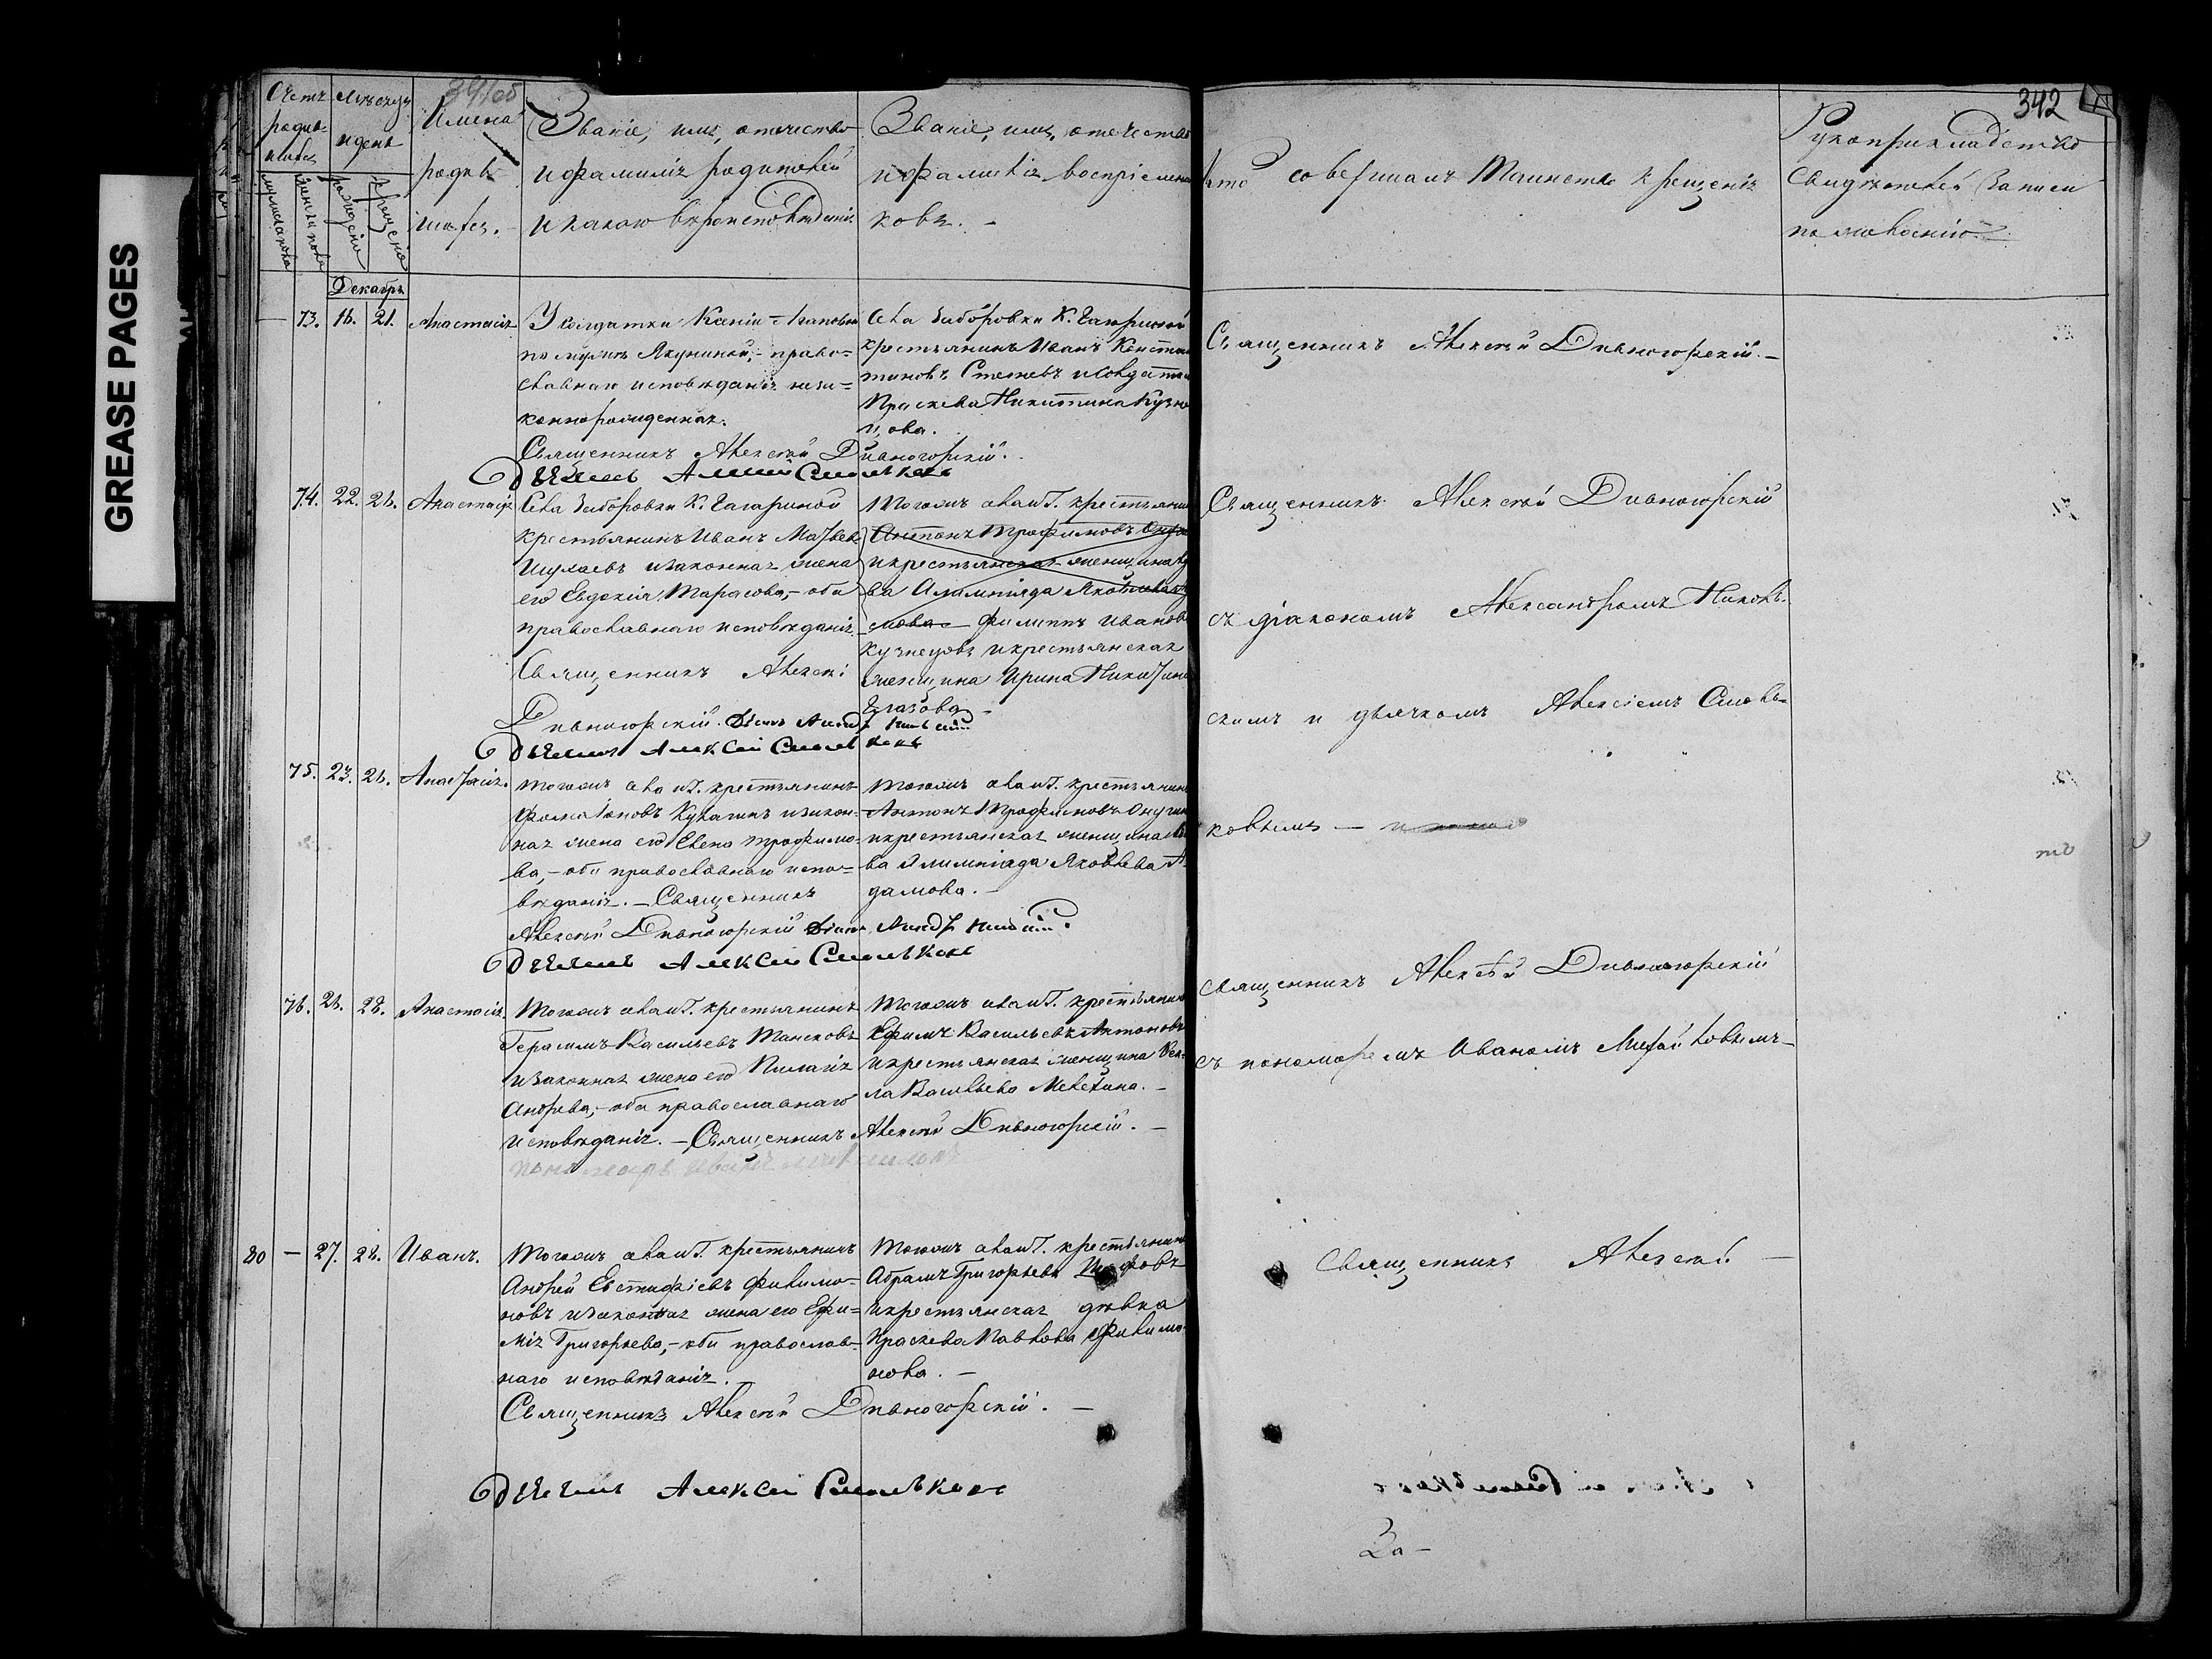 GREASE PAGES
341об
342
Счетъ родив-шихся
Мѣсяцъ и день
Имена родив-шихся.
Званіе, имя, отчество
и фамилія родителей
и какого вѣроисповѣданія.
Званіе, имя, отчество
и фамилія воспріемни
ковъ. -
Кто совершалъ Таинство крещенія
Рукоприкладство
свидѣтелей записи
по желанію.
мужеска пола
женска пола
рожденія
крещенія
Декабрь
— 73. 16. 21. Анастасія
У солдатки Ксеніи
по мужѣ Якуниной, - право=
славнаго исповѣданія неза=
коннорожденная.
Священникъ Алексѣй Дивногорскій.
Дьячекъ Алексей Смольковъ
Села Заборовки К. Гагариной
крестьянинъ Иванъ Констан
тиновъ и солдатка
Праскева Никитина Кузне
цова.
Священникъ Алексѣй Дивногорскій. —
74. 22. 26. Анастасія
Села Заборовки К. Гагариной
крестьянинъ Иванъ Матвеев
Шулаевъ и законная жена
его Евдокія Тарасова, - оба
православнаго исповѣданія.
Священникъ Алексѣй
Дивногорскій.
Дьячекъ Алексей Смольковъ
Тогожъ села и Г. крестьянин
Антонъ Трофимовъ
и крестьянская женщина
ва Алимпіада Яковлева
Филиппъ Иванов
Кузнецовъ и крестьянская
женщина Ирина Никитина
Глазова —
Священникъ Алексѣй Дивногорскій
съ діакономъ Александромъ Николь-
скимъ и дьячкомъ Алексіемъ Смоль-
ковымъ —
75. 23. 26. Анастасія.
Тогожъ села и Г. крестьянинъ
Фома Кулагинъ и закон-
ная жена его Елена Трофимо-
ва, - оба православнаго испо=
вѣданія. — Священникъ
Алексѣй Дивногорскій
Дьячекъ Алексей Смольковъ
Тогожъ села и Г. крестьянин
Антонъ Трофимовъ
и крестьянская женщина
ва Алимпіада Яковлева А-
дамова. —
76. 26. 28. Анастасія
Тогожъ села и Г. крестьянинъ
Герасимъ Васильевъ Тансковъ
и законная жена его Пилагія
Андрева, - оба православнаго
исповѣданія. — Священникъ Алексѣй Дивногорскій. —
пономарь Иванъ
Тогожъ села и Г. крестьянин
Ефимъ Васильевъ Антоновъ
и крестьянская женщина Фек-
ла Васильева
Священникъ Алексѣй Дивногорскій
съ пономаремъ Иваномъ Михайловымъ —
80 — 27. 28. Иванъ.
Тогожъ села и Г. крестьянинъ
Андрей Евстифіевъ Филимо-
новъ и законная жена его Ефи=
мія Григорьева, - оба православ-
наго исповѣданія. —
Священникъ Алексѣй Дивногорскій. —
Дьячекъ Алексей Смольковъ
Тогожъ села и Г. крестьянин
Абрамъ Григорьевъ
и крестьянская дѣвка
Праскева Павлова Филимо-
нова. —
Священникъ Алексѣй —
За —